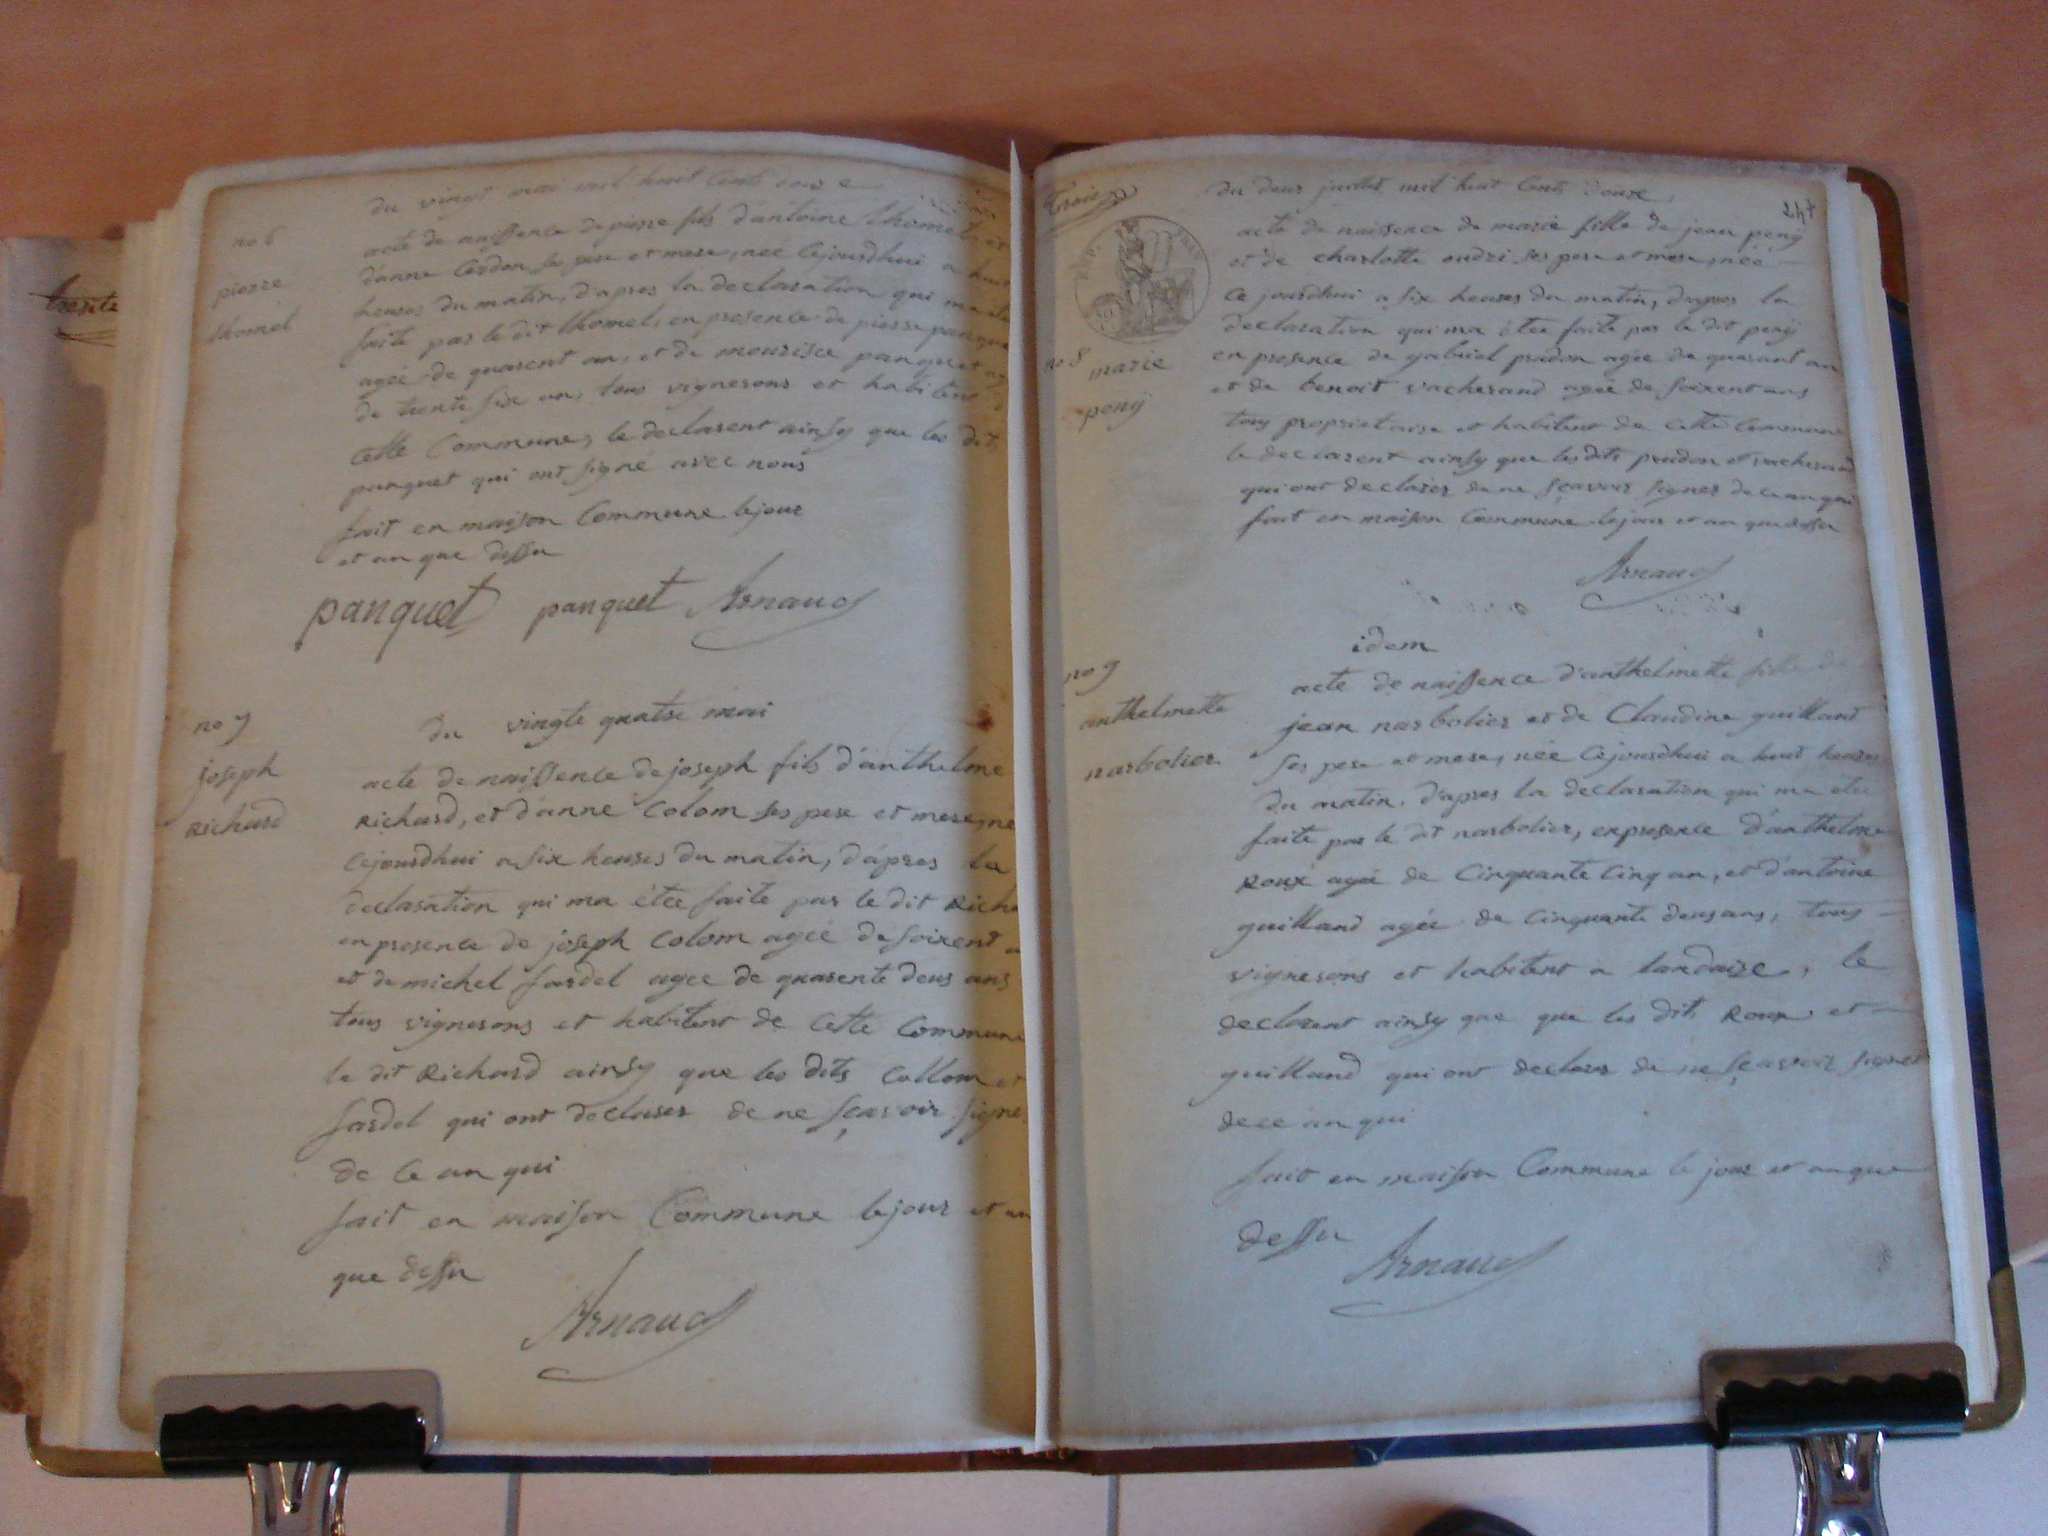 trente
du vingt mai mil huit Cents douze
no 6
pierre
thomel
acte de naissence de pierre fils d'antoine thomel, et
d'anne Cerdon, se pere et mere, née Cejourdhui a huit
heures du matin, d'apres la declaration qui ma étée
faite par le dit thomel, en presence de pierre panquet
agée de quarent an, et de mourisce panquet agée
de trente six an, tous vignerons et habitent d
Cette Commune, le declarent ainsy que les dits
panquet qui ont signé avec nous
fait en maison Commune le jour
et an que dessu
panquet panquet Arnaud
no 7
joseph
Richard
du vingte quatre mai
acte de naissence de joseph fils d'anthelme
Richard, et d'anne Colom ses pere et mere, né
Cejourdhui a six heures du matin, d'apres la
declaration qui ma étée faite par le dit Richa
en presence de joseph Colom agée de soixent a
et de michel fardel agée de quarente deus ans
tous vignerons et habitent de Cette Commune
le dit Richard ainsy que les dits Collom et
fardel qui ont declarer de ne sçavoir signe
de Ce an qui
fait en maison Commune le jour et an
que dessu
Arnaud
Trois
247
du deux juillet mil huit Cents douze
no 8 marie
peny
acte de naissence de marie fille de jean peny
et de charlotte oudri ses pere et mere, née
Ce jourdhui a six heures du matin, d'apres la
declaration qui ma étée faite par le dit peny
en presence de gabriel prudon agée de quarant an
et de benoit vacherand agée de soixent ans
tous proprietaire et habitent de Cette Commune
le declarent ainsy que les dits prudon et vacherand
qui ont declarer de ne sçavoir signer de Ce an qui
fait en maison Commune le jour et an que dessu
Arnaud
idem
no 9
anthelmette
narbolier
acte de naissence d'anthelmette fille de
jean narbolier et de Claudine guilland
ses pere et mere, née Cejourdhui a huit heures
du matin, d'apres la declaration qui ma étée
faite par le dit narbolier, en presence d'anthelme
Roux agée de Cinquante Cinq an, et d'antoine
guilland agée de Cinquante deus ans, tous
vignerons et habitent a landaize, le
declarent ainsy que que les dit Roux et
guilland qui ont declarer de ne sçavoir signer
de ce an qui
fait en maison Commune le jour et an que
dessu
Arnaud